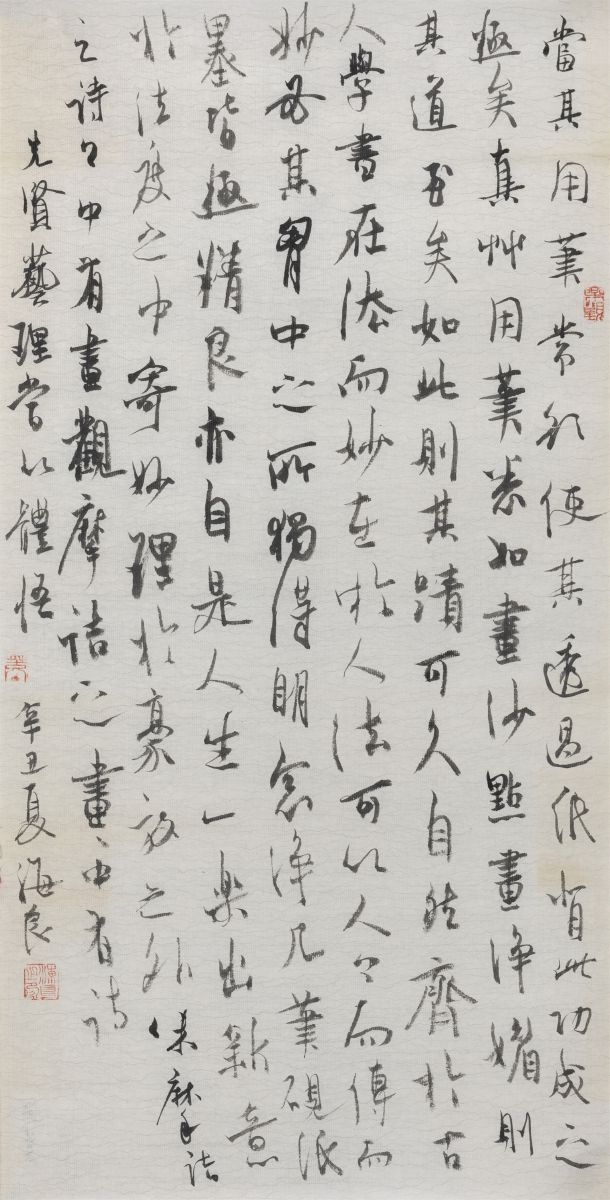 當其用筆常欲使其透過紙背此功成之
極矣真艸用筆悉如畫沙點畫淨媚則
其道至矣如此則其蹟可久自然齊於古
人學書在法而妙在於人法可以人人而傳而
妙必其胸中之所獨得明窗淨几筆硯紙
墨皆極精良亦自是人生一樂出新意
於法度之中寄妙理於豪放之外味摩詰
之詩詩中有畫觀摩詰之畫畫中有詩
先賢藝理當以體悟
辛丑夏海良